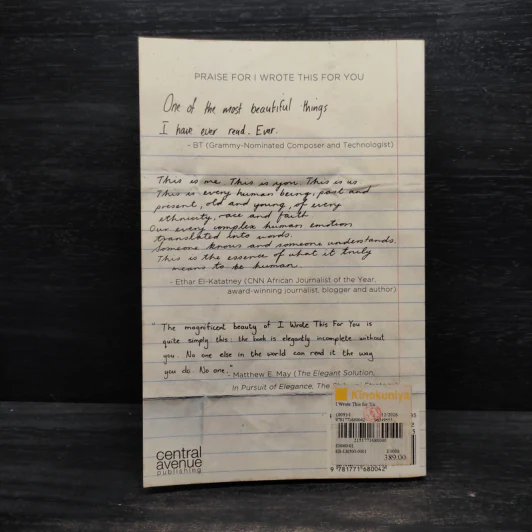 PRAISE FOR I WROTE THIS FOR YOU
One of the most beautiful things
I have ever read. Ever.
- BT (Grammy-Nominated Composer and Technologist)
This is me. This is you. This is us
This is every human being, past and
present, old and young, of every
ethnicity, race and faith
Our every complex human emotion
translated into words.
Someone knows and someone understands.
This is the essence of what it truly
means to be human.
- Ethar El-Katatney (CNN African Journalist of the Year,
award-winning journalist, blogger and author)
"The magnificent beauty of I Wrote This For You is
quite simply this: the book is elegantly incomplete without
you. No one else in the world can read it the way
you do. No one."
- Matthew E. May (The Elegant Solution,
In Pursuit of Elegance, The
Kinokuniya
I Wrote This for Yo
389.00
9 781771 680042
central
avenue
publishing